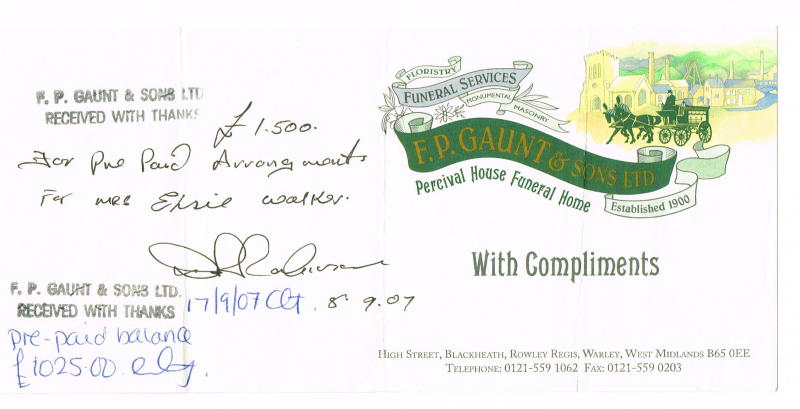 F. P. GAUNT & SONS LTD
RECEIVED WITH THANKS
£1.500.
For Pre Paid Arrangements
For MRS Elsie Walker.
F. P. GAUNT & SONS LTD.
RECEIVED WITH THANKS
17/9/07 8.9.07
pre-paid balance
£1025.00.
FLORISTRY
FUNERAL SERVICES
MONUMENTAL
MASONRY
F.P. GAUNT & SONS LTD
Percival House Funeral Home
Established 1900
With Compliments
HIGH STREET, BLACKHEATH, ROWLEY REGIS, WARLEY, WEST MIDLANDS B65 0EE
TELEPHONE: 0121-559 1062 FAX: 0121-559 0203